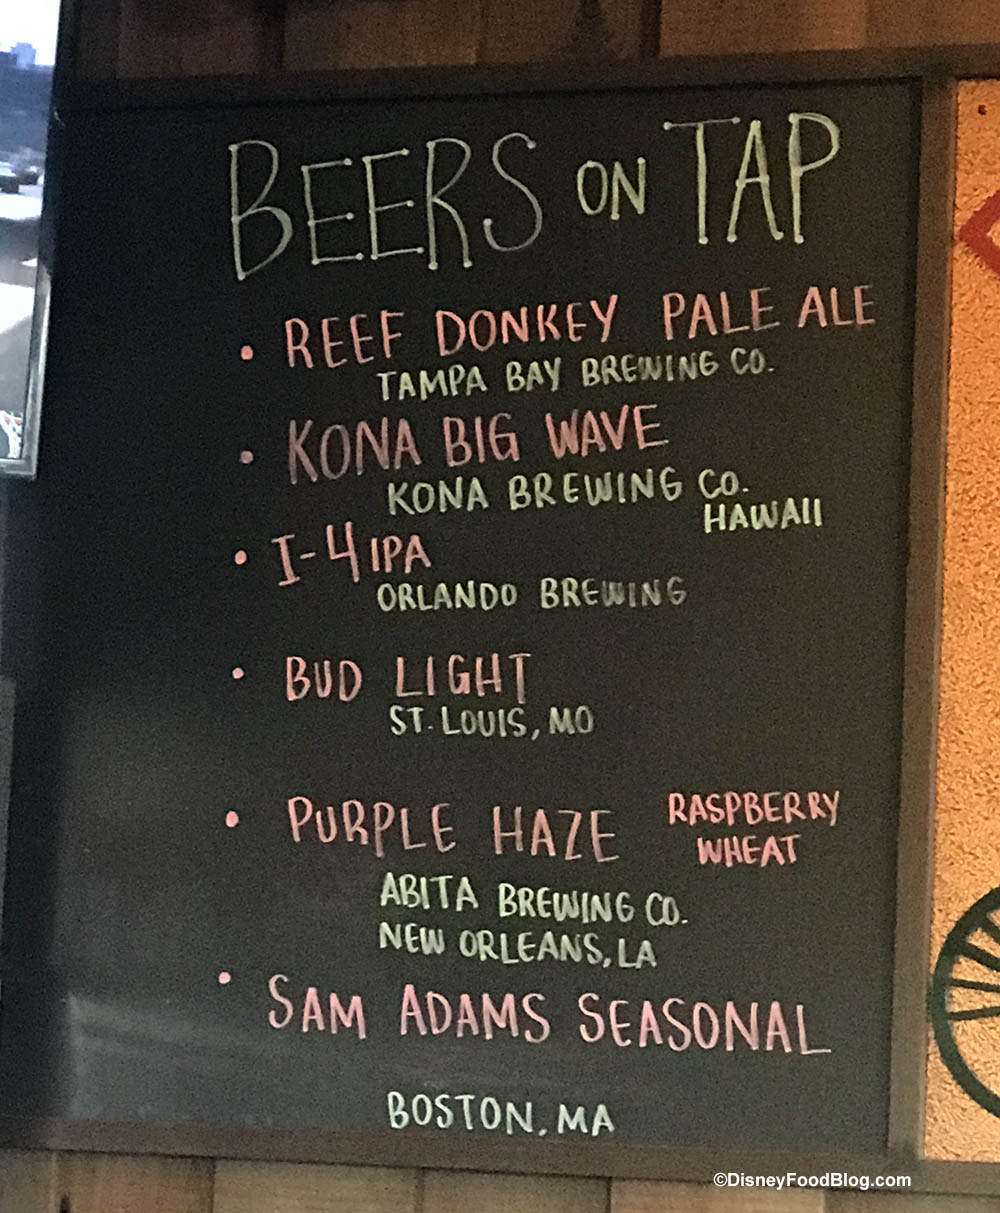 BEERS ON TAP
• REEF DONKEY PALE ALE
TAMPA BAY BREWING CO.
• KONA BIG WAVE
KONA BREWING CO.
HAWAII
• I-4 IPA
ORLANDO BREWING
• BUD LIGHT
ST. LOUIS, MO
• PURPLE HAZE RASPBERRY
WHEAT
ABITA BREWING CO.
NEW ORLEANS, LA
• SAM ADAMS SEASONAL
BOSTON, MA
©DisneyFoodBlog.com